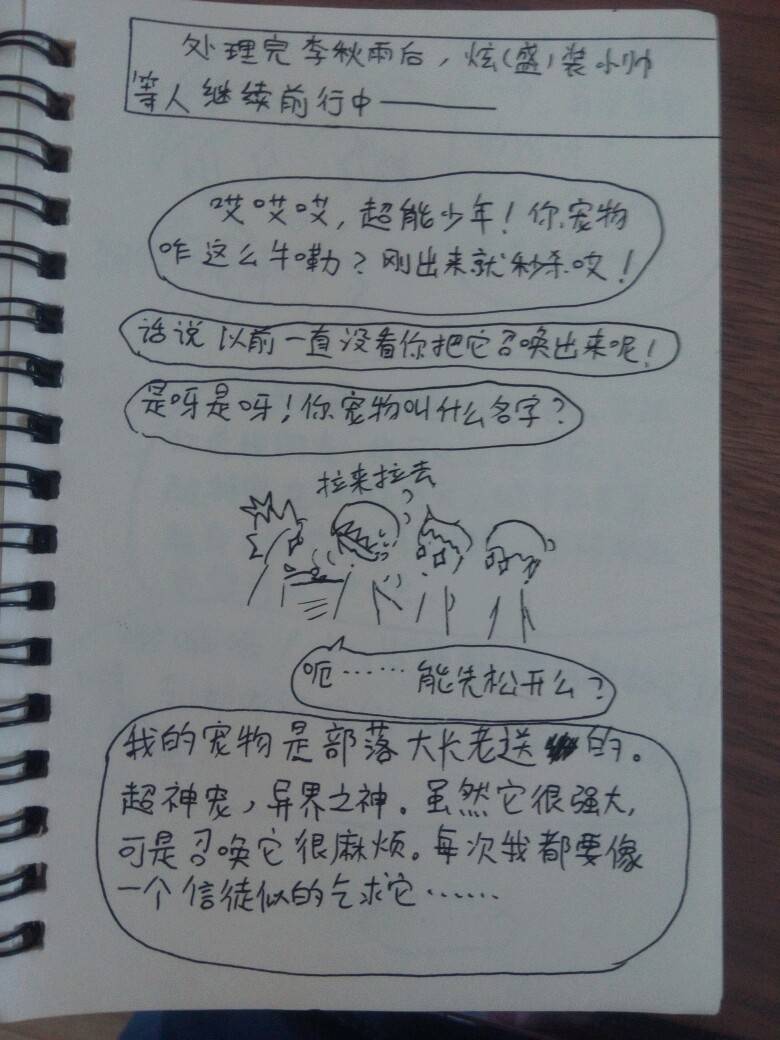 处理完李秋雨后，炫(盛)装小帅
等人继续前行中———
哎哎哎，超能少年！你宠物
咋这么牛嘞？刚出来就秒杀哎！
话说以前一直没看你把它召唤出来呢！
是呀是呀！你宠物叫什么名字？
拉来拉去
呃……能先松开么？
我的宠物是部落大长老送的。
超神宠，异界之神。虽然它很强大，
可是召唤它很麻烦。每次我都要像
一个信徒似的乞求它……